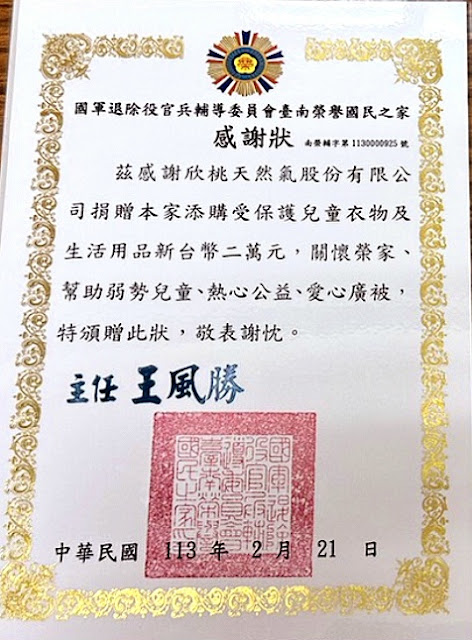 國軍退除役官兵輔導委員會臺南榮譽國民之家
感謝狀 南榮輔字第1130000925號
茲感謝欣桃天然氣股份有限公
司捐贈本家添購受保護兒童衣物及
生活用品新台幣二萬元，關懷榮家、
幫助弱勢兒童、熱心公益、愛心廣被，
特頒贈此狀，敬表謝忱。
主任 王風勝
國軍退除
役官兵輔
導委員會
臺南榮譽
國民之家
中華民國 113 年 2 月 21 日